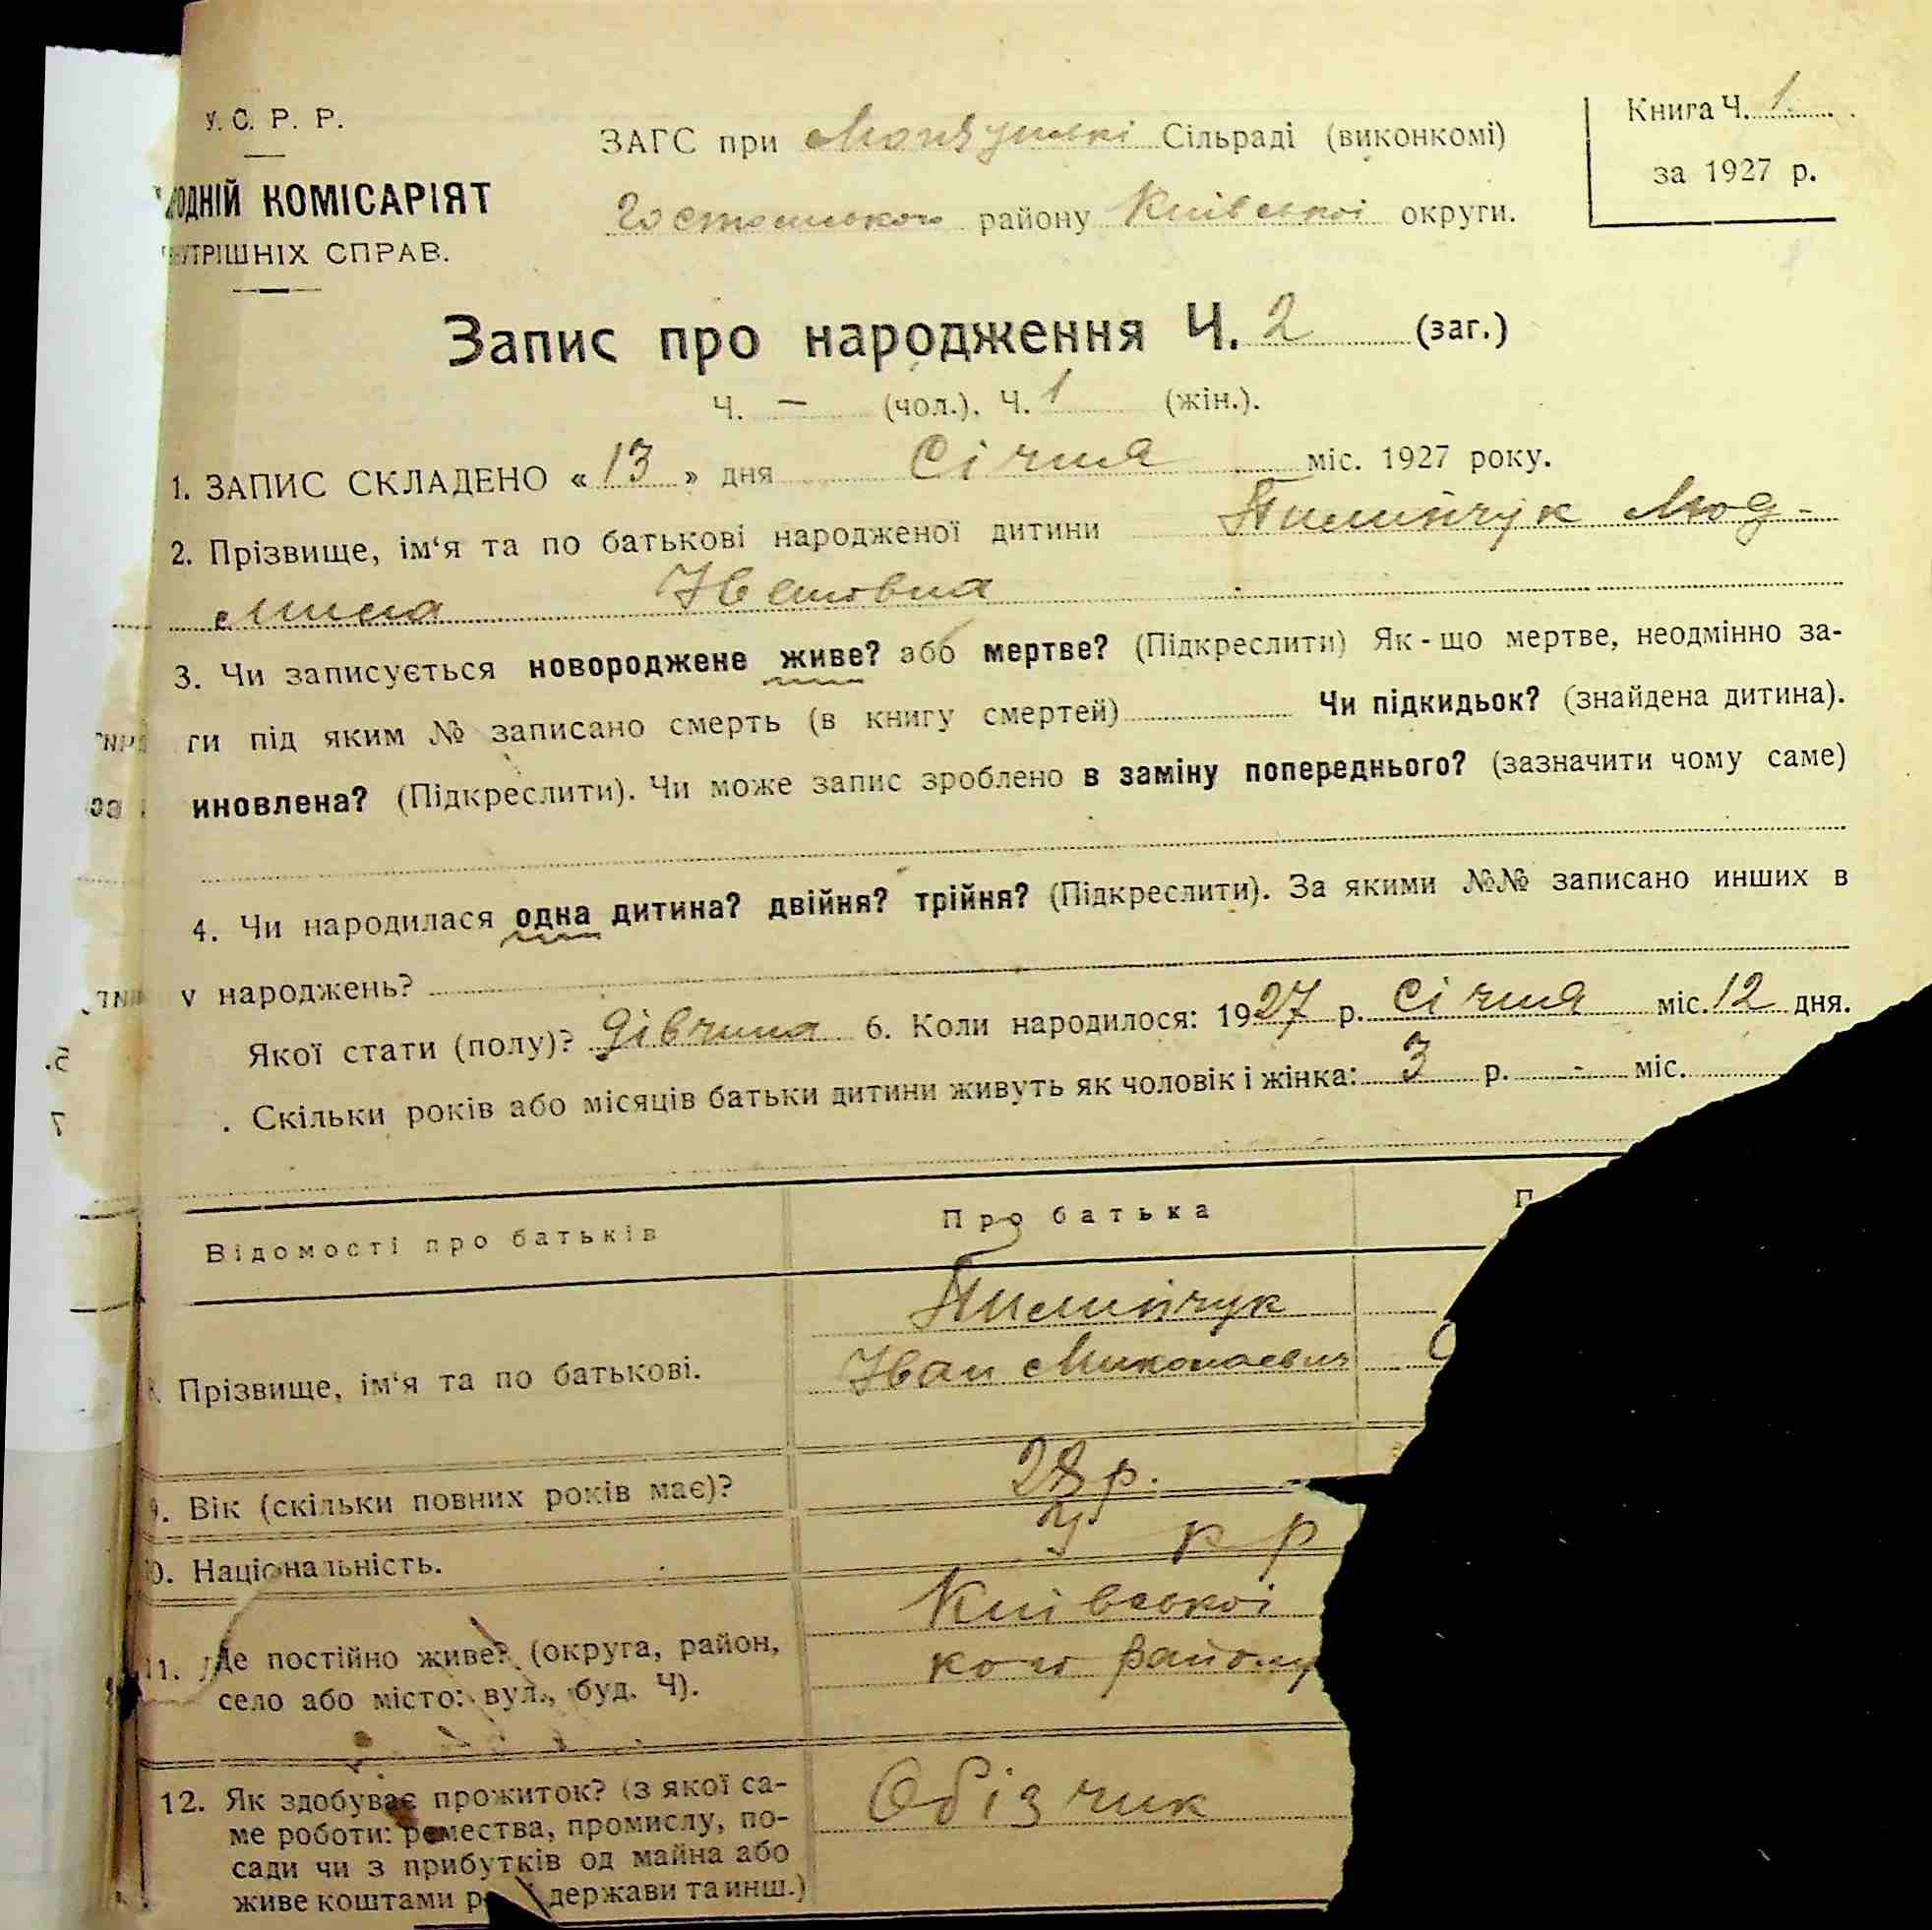 У. С. Р. Р.
ЗАГС при Мощунській Сільраді (виконкомі)
Книга Ч. 1
за 1927 р.
ОДНІЙ КОМІСАРІЯТ
УТРІШНІХ СПРАВ.
Гостомського району Київської округи.
Запис про народження Ч. 2 (заг.)
Ч. — (чол.). Ч. 1 (жін.).
1. ЗАПИС СКЛАДЕНО « 13 » дня Січня міс. 1927 року.
2. Прізвище, ім‘я та по батькові народженої дитини Пилипчук Люд-
мила Івановна
3. Чи записується новороджене живе? або мертве? (Підкреслити) Як-що мертве, неодмінно за-
ги під яким № записано смерть (в книгу смертей) Чи підкидьок? (знайдена дитина).
иновлена? (Підкреслити). Чи може запис зроблено в заміну попереднього? (зазначити чому саме)
4. Чи народилася одна дитина? двійня? трійня? (Підкреслити). За якими №№ записано инших в
у народжень?
Якої стати (полу)? дівчина 6. Коли народилося: 1927 р. Січня міс. 12 дня.
. Скільки років або місяців батьки дитини живуть як чоловік і жінка: 3 р. - міс.
Відомості про батьків
Про батька
П
Пилипчук
Прізвище, ім‘я та по батькові.
Іван Миколаевич
9. Вік (скільки повних років має)?
28 р.
0. Національність.
Укр
11. Де постійно живе? (округа, район,
село або місто: вул., буд. Ч).
Київської
кого району
12. Як здобуває прожиток? (з якої са-
ме роботи: ремества, промислу, по-
сади чи з прибутків од майна або
живе коштами р держави та инш.)
Обізчик